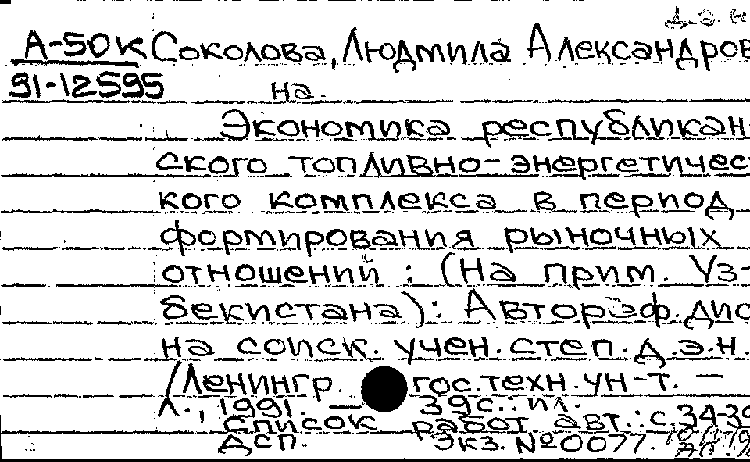 Д.Э.Н
А-50к Соколова, Людмила Александров
91-12595 на.
Экономика республикан-
ского топливно-энергетичес
кого комплекса в период
формирования рыночных
отношений : (На прим. Уз-
бекистана): Автореф. дис
на соиск. учен. степ. д.э.н.
/Ленингр. гос. техн. ун-т. —
Л., 1991. — 39с.: ил.
Список работ авт.: с.34-39
Дсп. Экз. №0077.